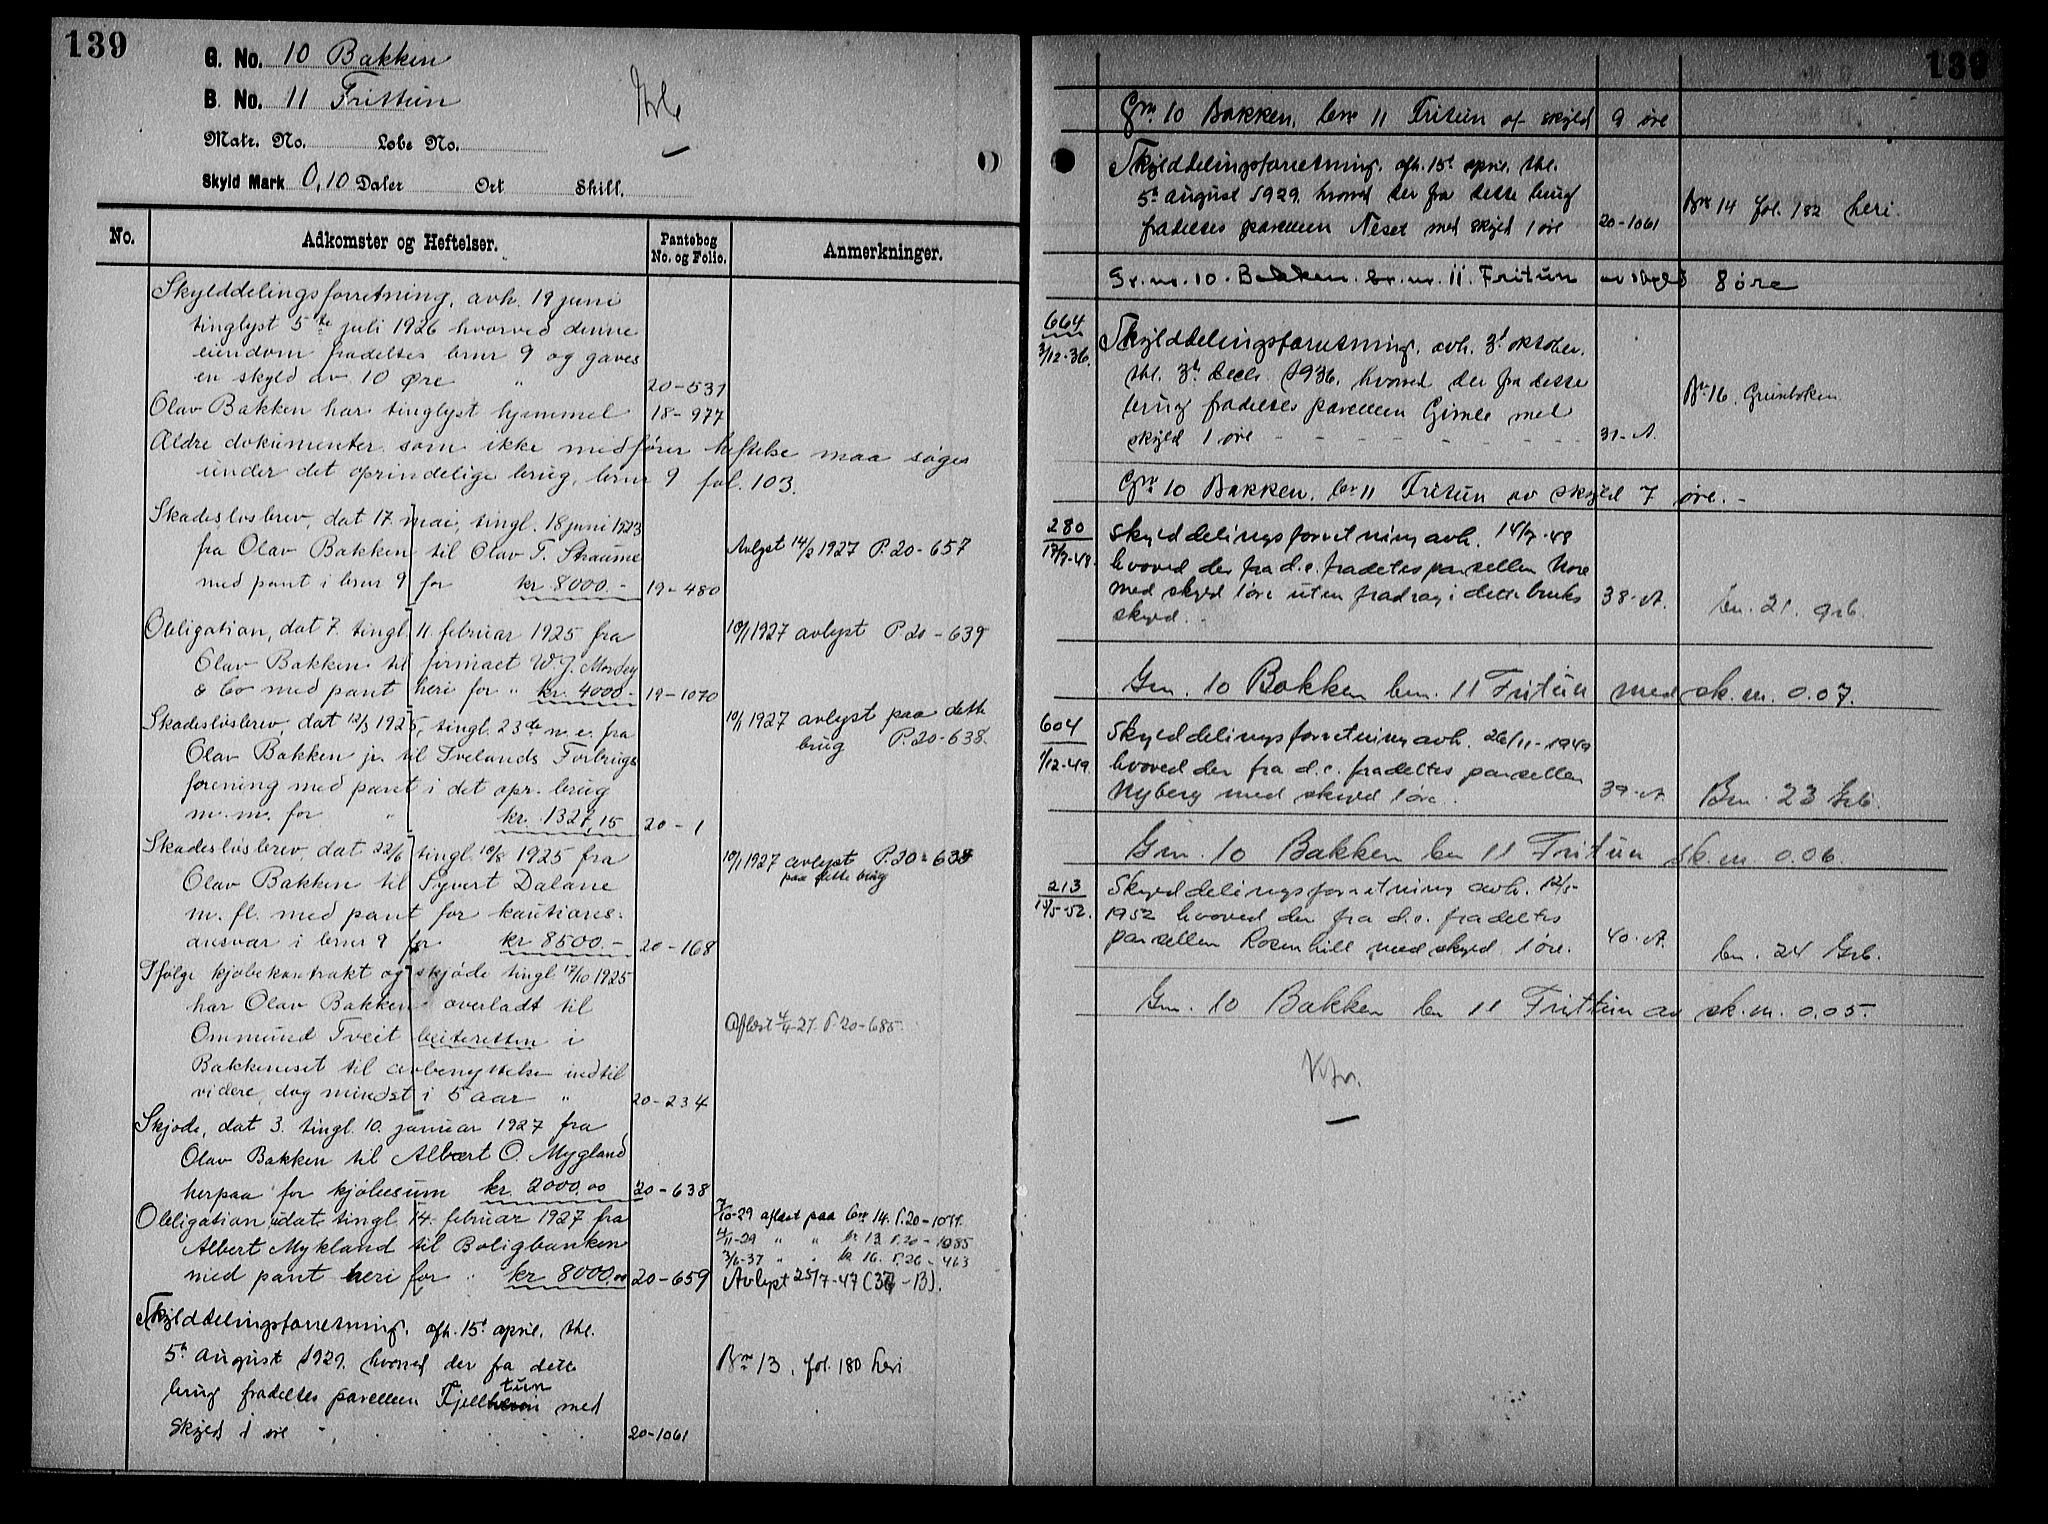 139
G. No. 10 Bakken
B. No. 11 Frittun
Matr. No. Løbe No.
Skyld Mark 0,10 Daler Ort Skill.
No. Adkomster og Heftelser. Pantebog No. og Folio. Anmerkninger.
Skylddelingsforretning, avh. 19 juni
tinglyst 5te juli 1926 hvorved denne
eiendom fradeltes brnr 9 og gaves
en skyld av 10 Øre " 20-531
Olav Bakken har tinglyst hjemmel 18-977
Ældre dokumenter som ikke medfører heftelse maa søges
under det oprindelige brug, brnr 9 fol. 103.
Skadesløsbrev, dat 17. mai, tingl. 18 juni 1923
fra Olav Bakken til Olav T. Straume
med pant i brnr 9 for kr 8000.- 19-480
Avlyst 14/2 1927 P. 20-657
Obligation, dat 7. tingl. 11. februar 1925 fra
Olav Bakken til firmaet W. J. Mordey
& Co med pant heri for " kr. 4000.- 19-1070
10/1 1927 avlyst P. 20-639
Skadesløsbrev, dat 12/3 1925, tingl. 23de n.e. fra
Olav Bakken jr. til Ivelands Forbrugs
forening med pant i det opr. brug
m.m. for " kr. 1327,15 20-1
10/1 1927 avlyst paa dette
brug P. 20-638.
Skadesløsbrev, dat 22/6 tingl. 10/8 1925 fra
Olav Bakken til Syvert Dalane
m. fl. med pant for kautions-
ansvar i brnr 9 for kr 8500.- 20-168
10/1 1927 avlyst P. 20-638
paa dette brug
Ifølge kjøbekontrakt og skjøde tingl. 17/10 1925
har Olav Bakken overladt til
Ommund Tveit beiteretten i
Bakkeneset til avbenyttelse indtil
videre, dog mindst i 5 aar " 20-234
Aflæst 4/4-27. P. 20-685.
Skjøde, dat 3. tingl. 10. januar 1927 fra
Olav Bakken til Albert O. Mygland
herpaa for kjøbesum kr. 2000.00 20-638
Obligation udat. tingl. 14. februar 1927 fra
Albert Mykland til Boligbanken
med pant heri for " kr 8000.00 20-659
7/10-29 aflæst paa bnr 14. P. 20-1077.
4/11-29 " " br 13. P. 20-1085
3/6-37 " " br 16. P. 26-463
Avlyst 25/7-47 (37-B).
Skylddelingsforretning, afh. 15d april, thl.
5t august 1929, hvorved der fra dette
brug fradeltes parcellen Fjelltun med
skyld 1 øre 20-1061
Bnr 13, fol. 180 heri
139
Gnr 10 Bakken, bnr 11 Fritun af skyld 9 øre
Skylddelingsforretning, afh. 15d april, thl.
5t august 1929, hvorved der fra dette brug
fradeltes parcellen Neset med skyld 1 øre 20-1061
Bnr 14 fol. 182 heri.
Gr. nr. 10. Bakken. br. nr. 11. Fritun av skyld 8 øre
664
3/12-36. Skylddelingsforretning, avh. 3d oktober,
thl. 3d decbr 1936, hvorved der fra dette
brug fradeltes parcellen Gimle med
skyld 1 øre - - - - - - - 31-A.
Bnr 16. Grunboken
Gnr 10 Bakken, bnr 11 Fritun av skyld 7 øre.-
280
17/7-48. Skylddelingsforretning avh. 14/7-48
hvorved der fra d.e. fradeltes parsellen Nore
med skyld 1 øre uten fradrag i dette bruks
skyld. 38-A. bn. 21. grb.
Gnr. 10 Bakken bnr. 11 Fritun med sk.m. 0.07.
604
1/12-49. Skylddelingsforretning avh. 26/11-1949
hvorved der fra d.e. fradeltes parsellen
Nyberg med skyld 1 øre. 39-A Bnr. 23 Grb.
Gnr. 10 Bakken bnr 11 Fritun sk.m. 0.06.
213
15/5-52. Skylddelingsforretning avh. 12/5-
1952 hvorved der fra d.e. fradeltes
parsellen Rosenhill med skyld 1 øre. 40-A. bn. 24 Grb.
Gnr. 10 Bakken bnr 11 Frittun av sk.m. 0.05.